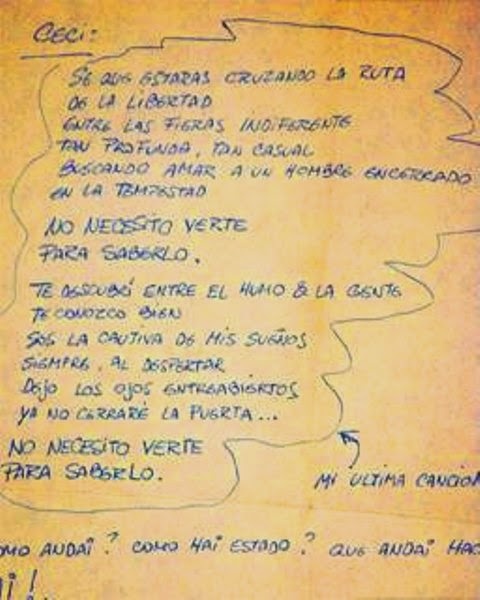 CECI:
SE QUE ESTARAS CRUZANDO LA RUTA
DE LA LIBERTAD
ENTRE LAS FIERAS INDIFERENTE
TAN PROFUNDA, TAN CASUAL
BUSCANDO AMAR A UN HOMBRE ENCERRADO
EN LA TEMPESTAD
NO NECESITO VERTE
PARA SABERLO.
TE DESCUBRÍ ENTRE EL HUMO & LA GENTE
TE CONOZCO BIEN
SOS LA CAUTIVA DE MIS SUEÑOS
SIEMPRE, AL DESPERTAR
DEJO LOS OJOS ENTREABIERTOS
YA NO CERRARÉ LA PUERTA...
NO NECESITO VERTE
PARA SABERLO.
MI ULTIMA CANCION
OMO ANDAI? COMO HAI ESTADO? QUE ANDAI HAC